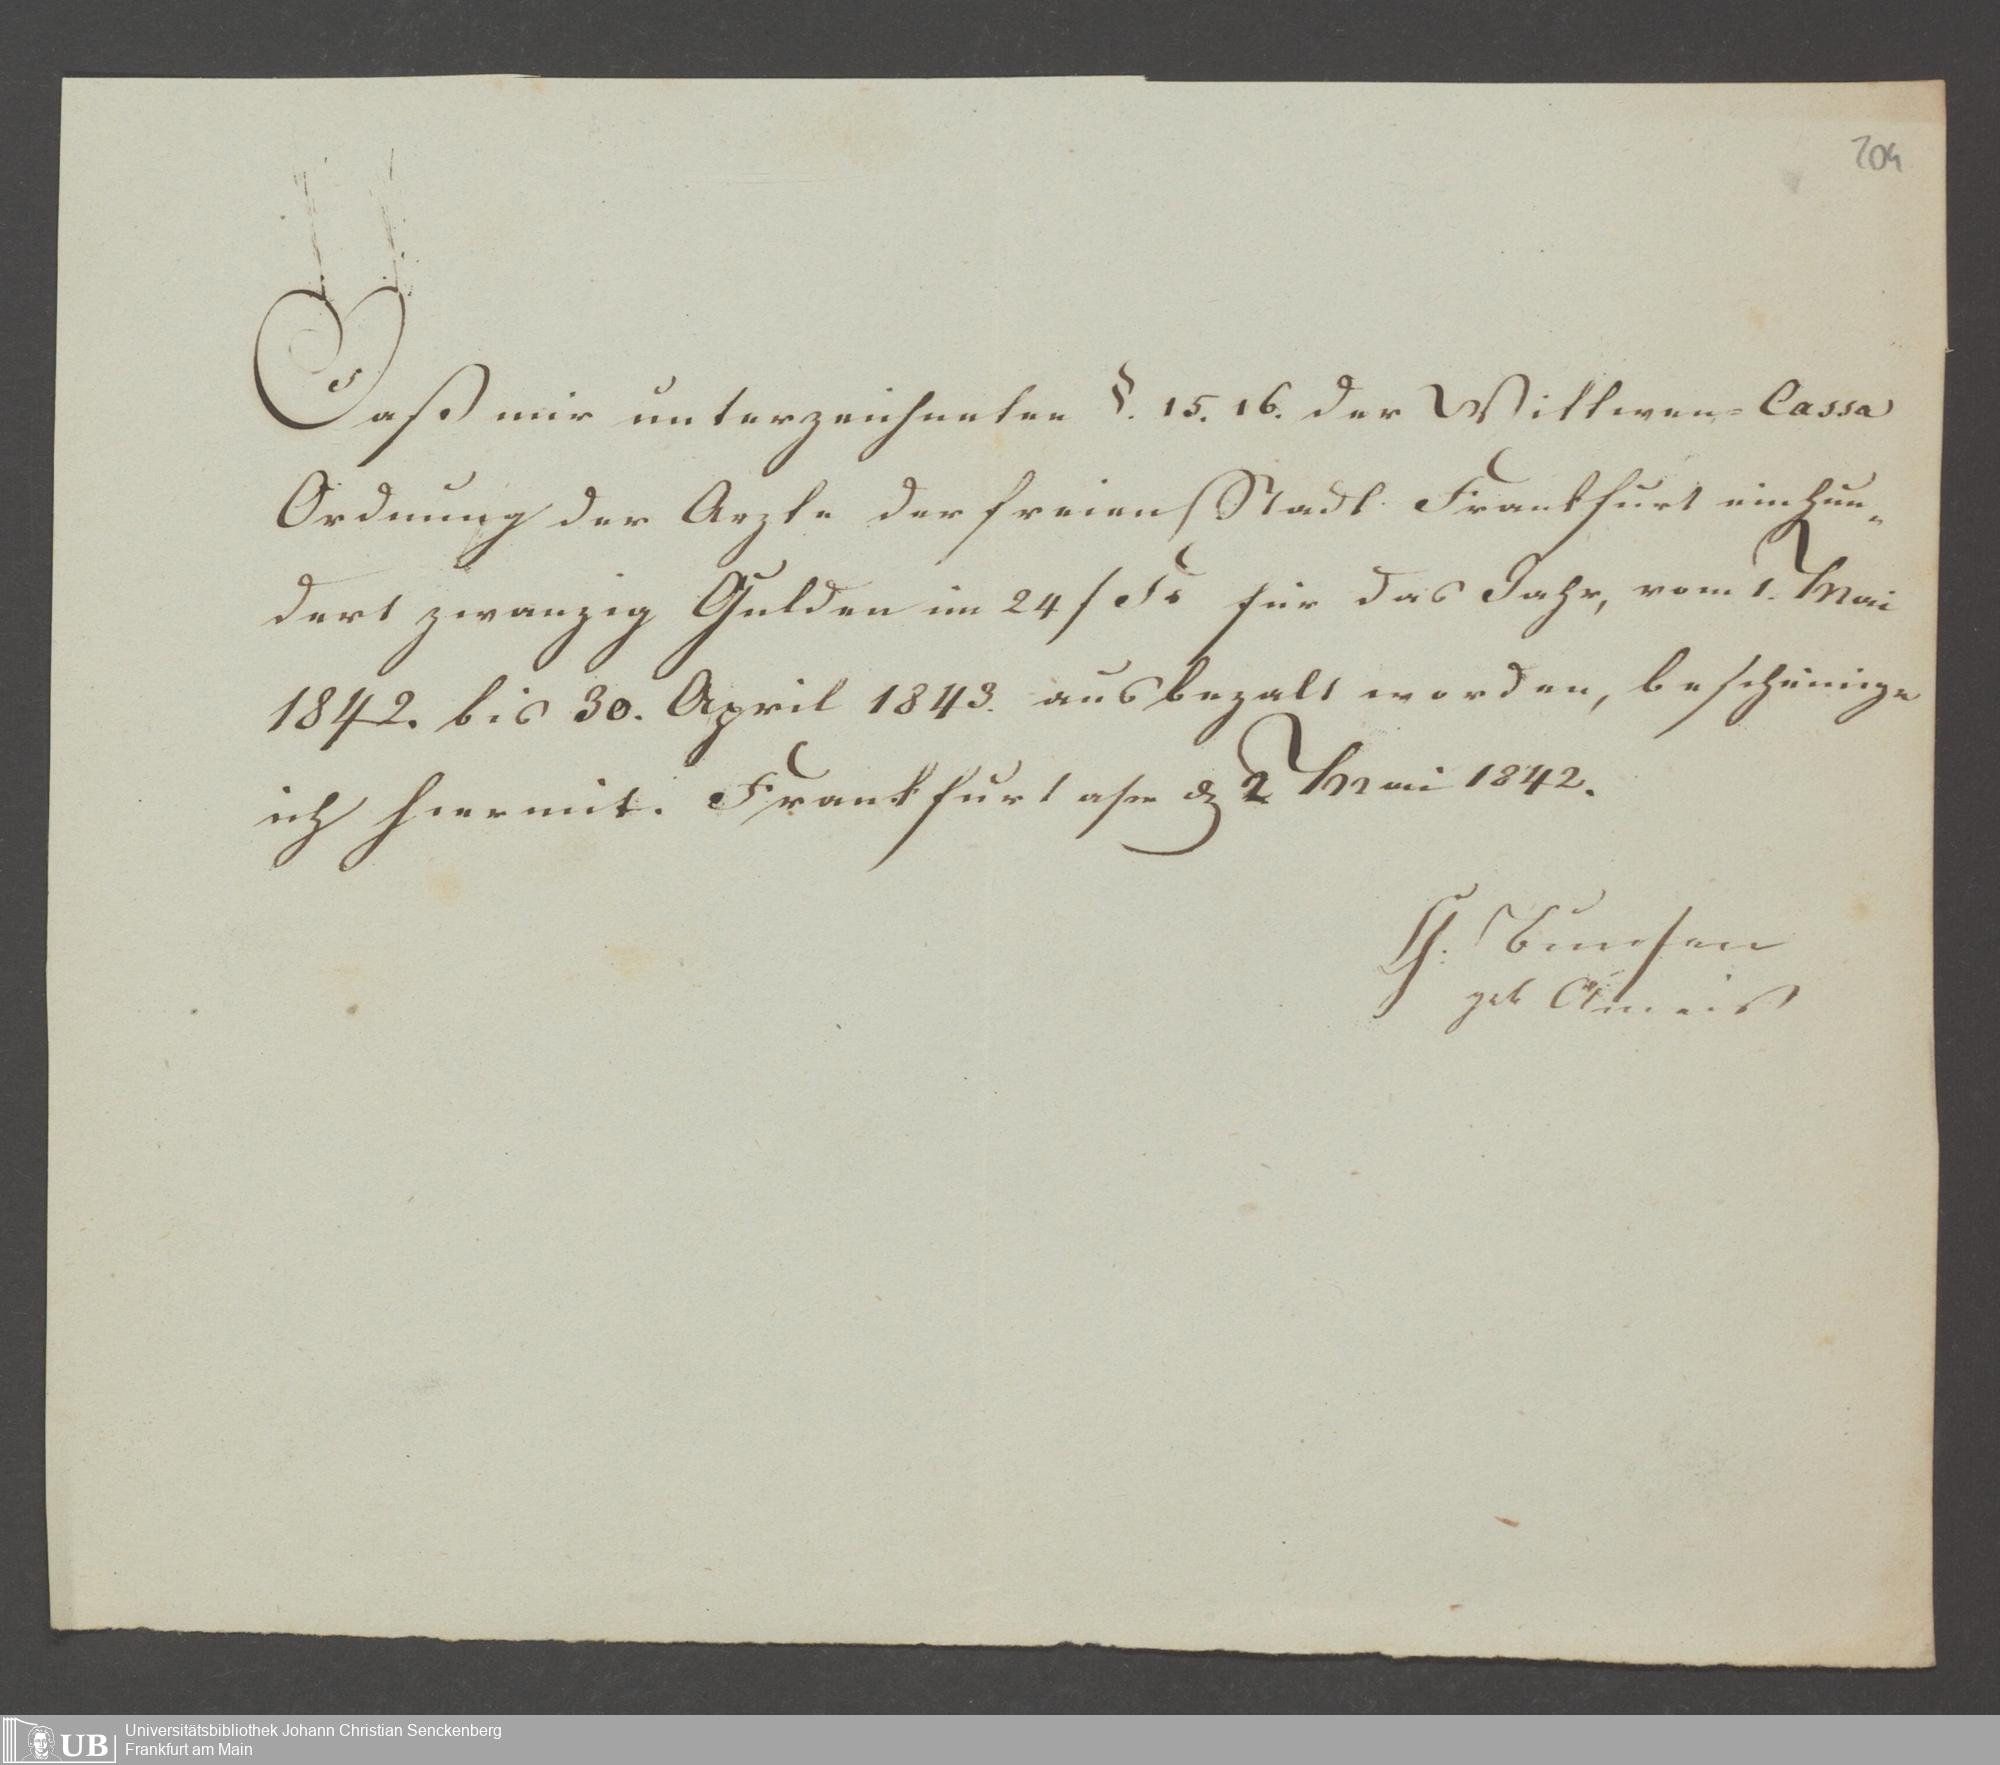 204
Daß mir unterzeichneten §. 15. 16. der Wittwen-Cassa
Ordnung der Aerzte der freien Stadt Frankfurt einhun-
dert zwanzig Gulden im 24 f Fs für das Jahr, vom 1. Mai
1842. bis 30. April 1843. ausbezalt worden, bescheinige
ich hiermit. Frankfurt a/m d 2 Mai 1842.
Bunsen
geb
UB
Universitätsbibliothek Johann Christian Senckenberg
Frankfurt am Main